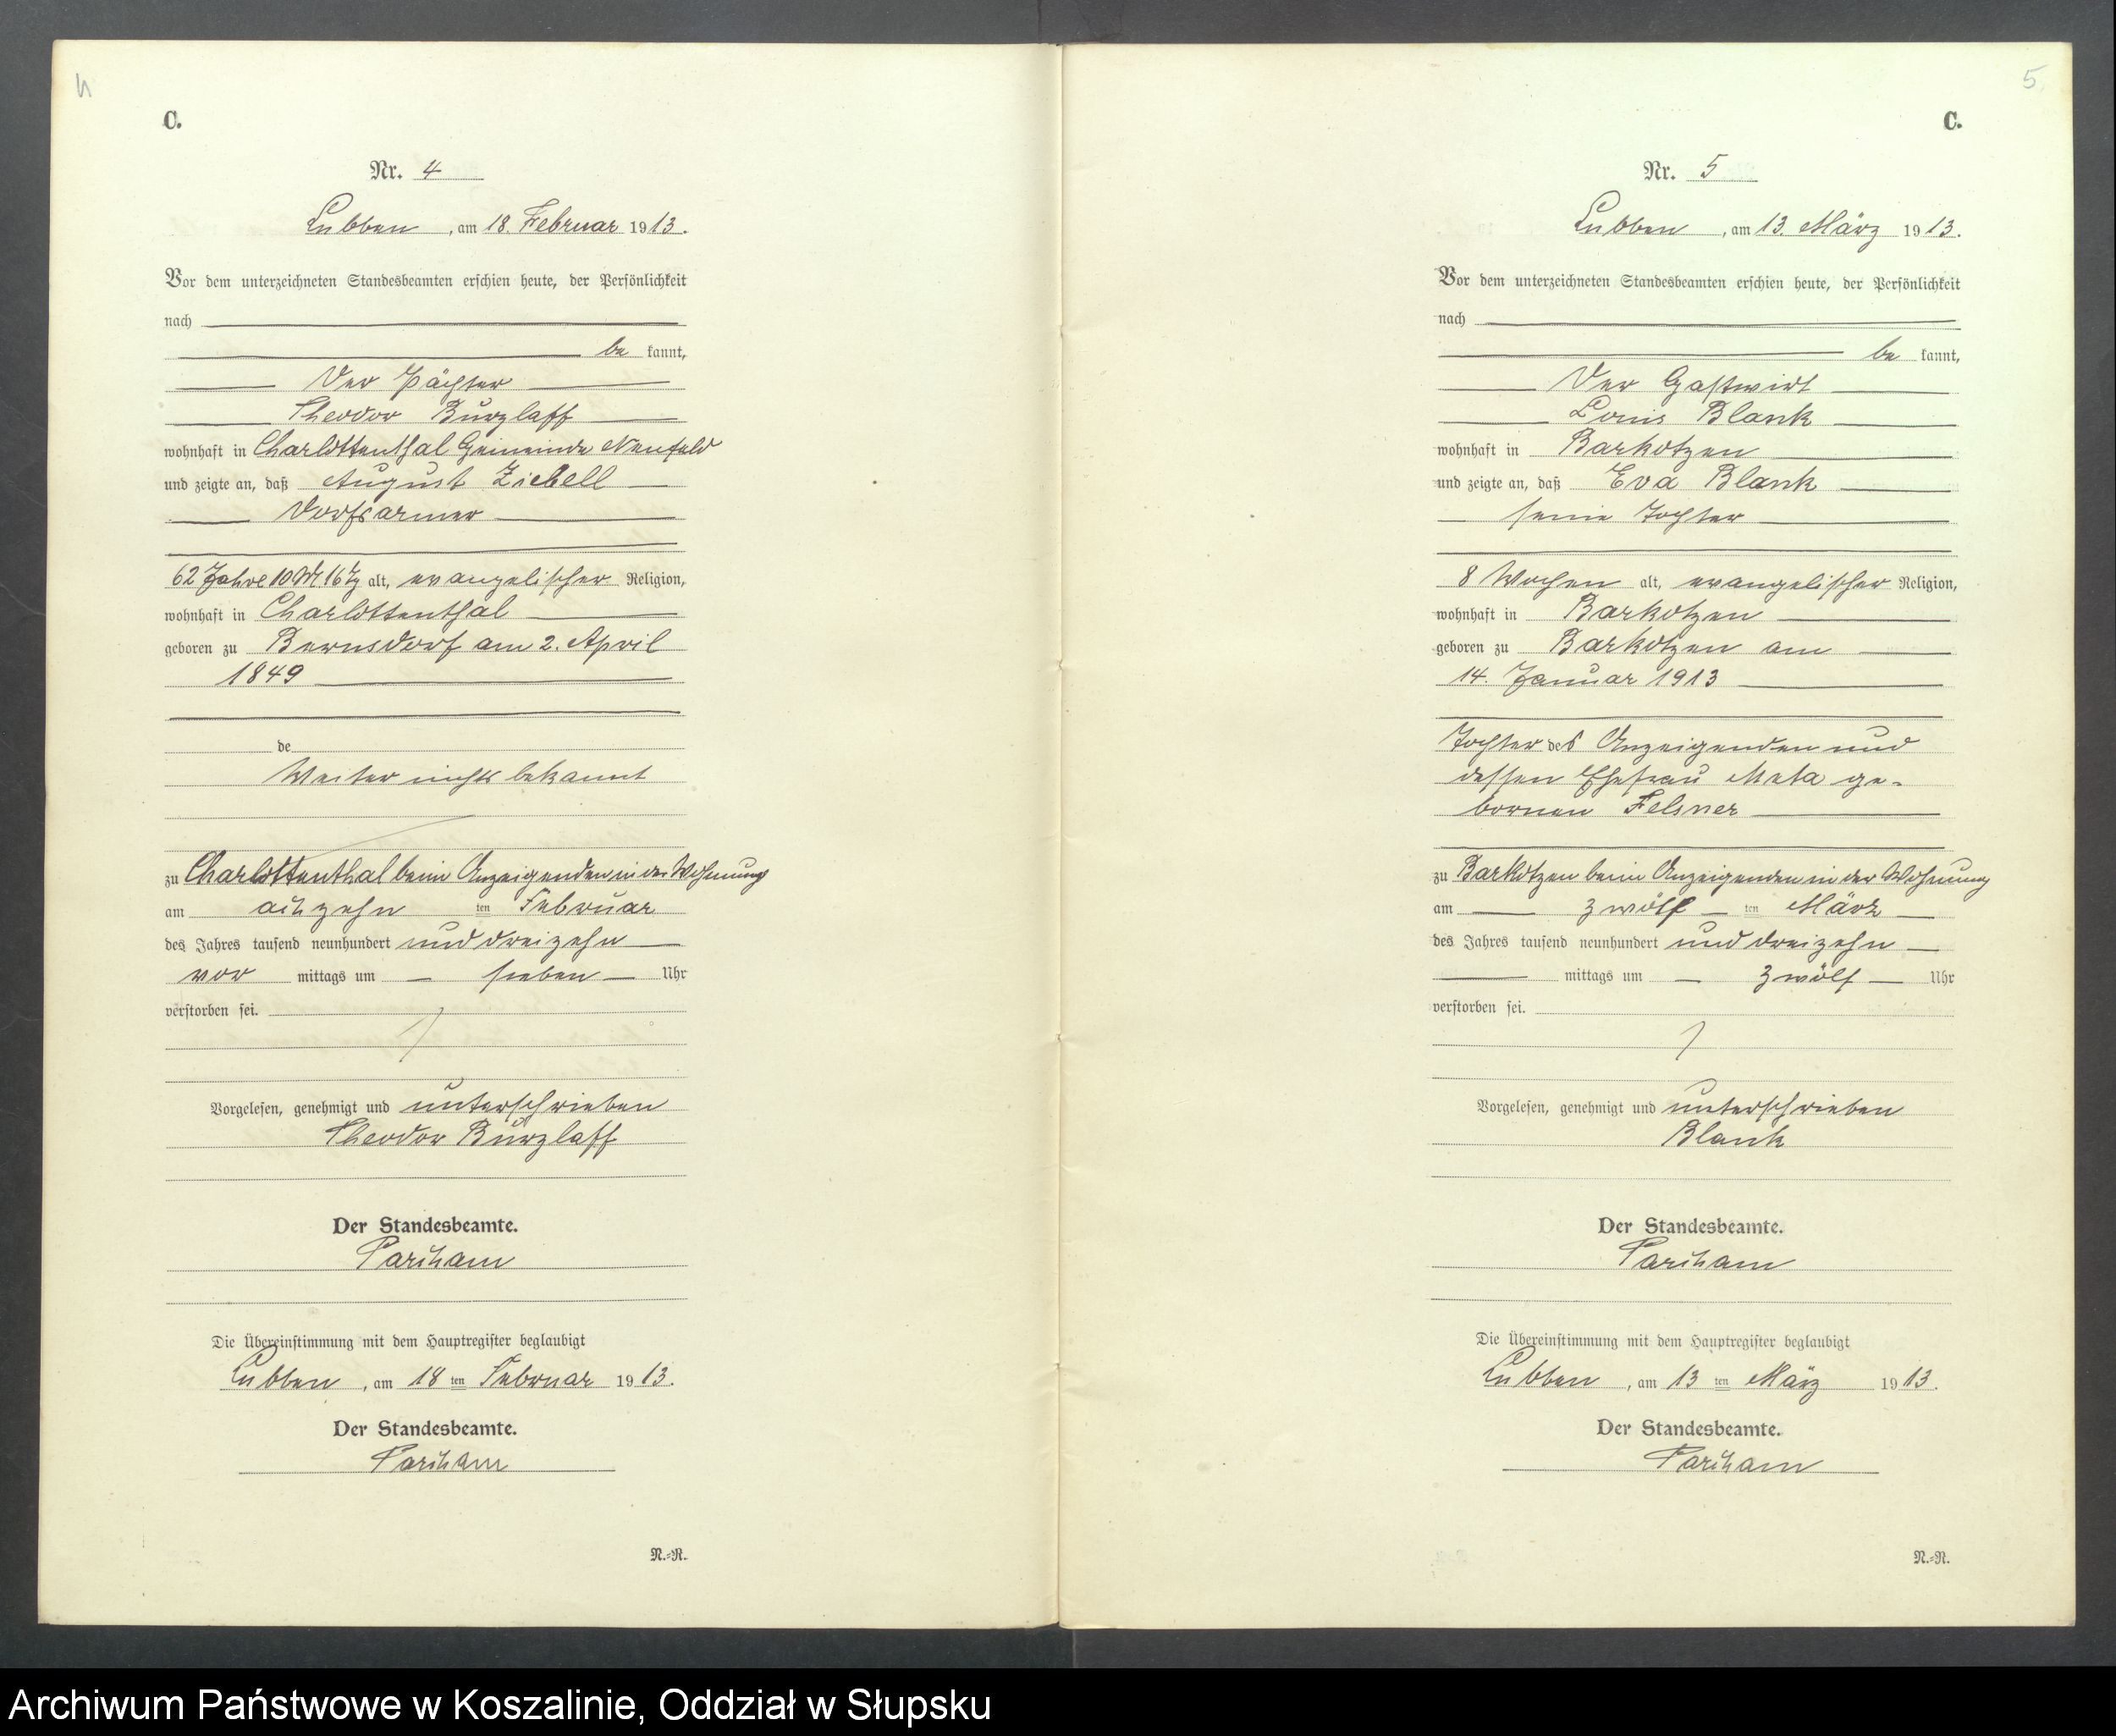 4
C.
Nr. 4
Lubben, am 18. Februar 1913.
Vor dem unterzeichneten Standesbeamten erschien heute, der Persönlichkeit
nach
be kannt,
Der Pächter
Theodor Burzlaff
wohnhaft in Charlottenthal Gemeinde Neufeld
und zeigte an, daß August Ziebell
Dorfsarmer
62 Jahre 10 Mt. 16 Tg alt, evangelischer Religion,
wohnhaft in Charlottenthal
geboren zu Bernsdorf am 2. April
1849
de
Weiter nichts bekannt
zu Charlottenthal beim Anzeigenden in der Wohnung
am achzehn ten Februar
des Jahres tausend neunhundert und dreizehn
vor mittags um sieben Uhr
verstorben sei.
Vorgelesen, genehmigt und unterschrieben
Theodor Burzlaff
Der Standesbeamte.
Die Übereinstimmung mit dem Hauptregister beglaubigt
Lubben, am 18 ten Februar 1913.
Der Standesbeamte.
N.=R.
5
C.
Nr. 5
Lubben, am 13. März 1913.
Vor dem unterzeichneten Standesbeamten erschien heute, der Persönlichkeit
nach
be kannt,
Der Gastwirt
Louis Blank
wohnhaft in Barkotzen
und zeigte an, daß Eva Blank
seine Tochter
8 Wochen alt, evangelischer Religion,
wohnhaft in Barkotzen
geboren zu Barkotzen am
14. Januar 1913
Tochter des Anzeigenden und
dessen Ehefrau Meta ge-
bornen Felsner
zu Barkotzen beim Anzeigenden in der Wohnung
am zwölf ten März
des Jahres tausend neunhundert und dreizehn
mittags um zwölf Uhr
verstorben sei.
Vorgelesen, genehmigt und unterschrieben
Blank
Der Standesbeamte.
Die Übereinstimmung mit dem Hauptregister beglaubigt
Lubben, am 13 ten März 1913.
Der Standesbeamte.
N.=R.
Archiwum Państwowe w Koszalinie, Oddział w Słupsku